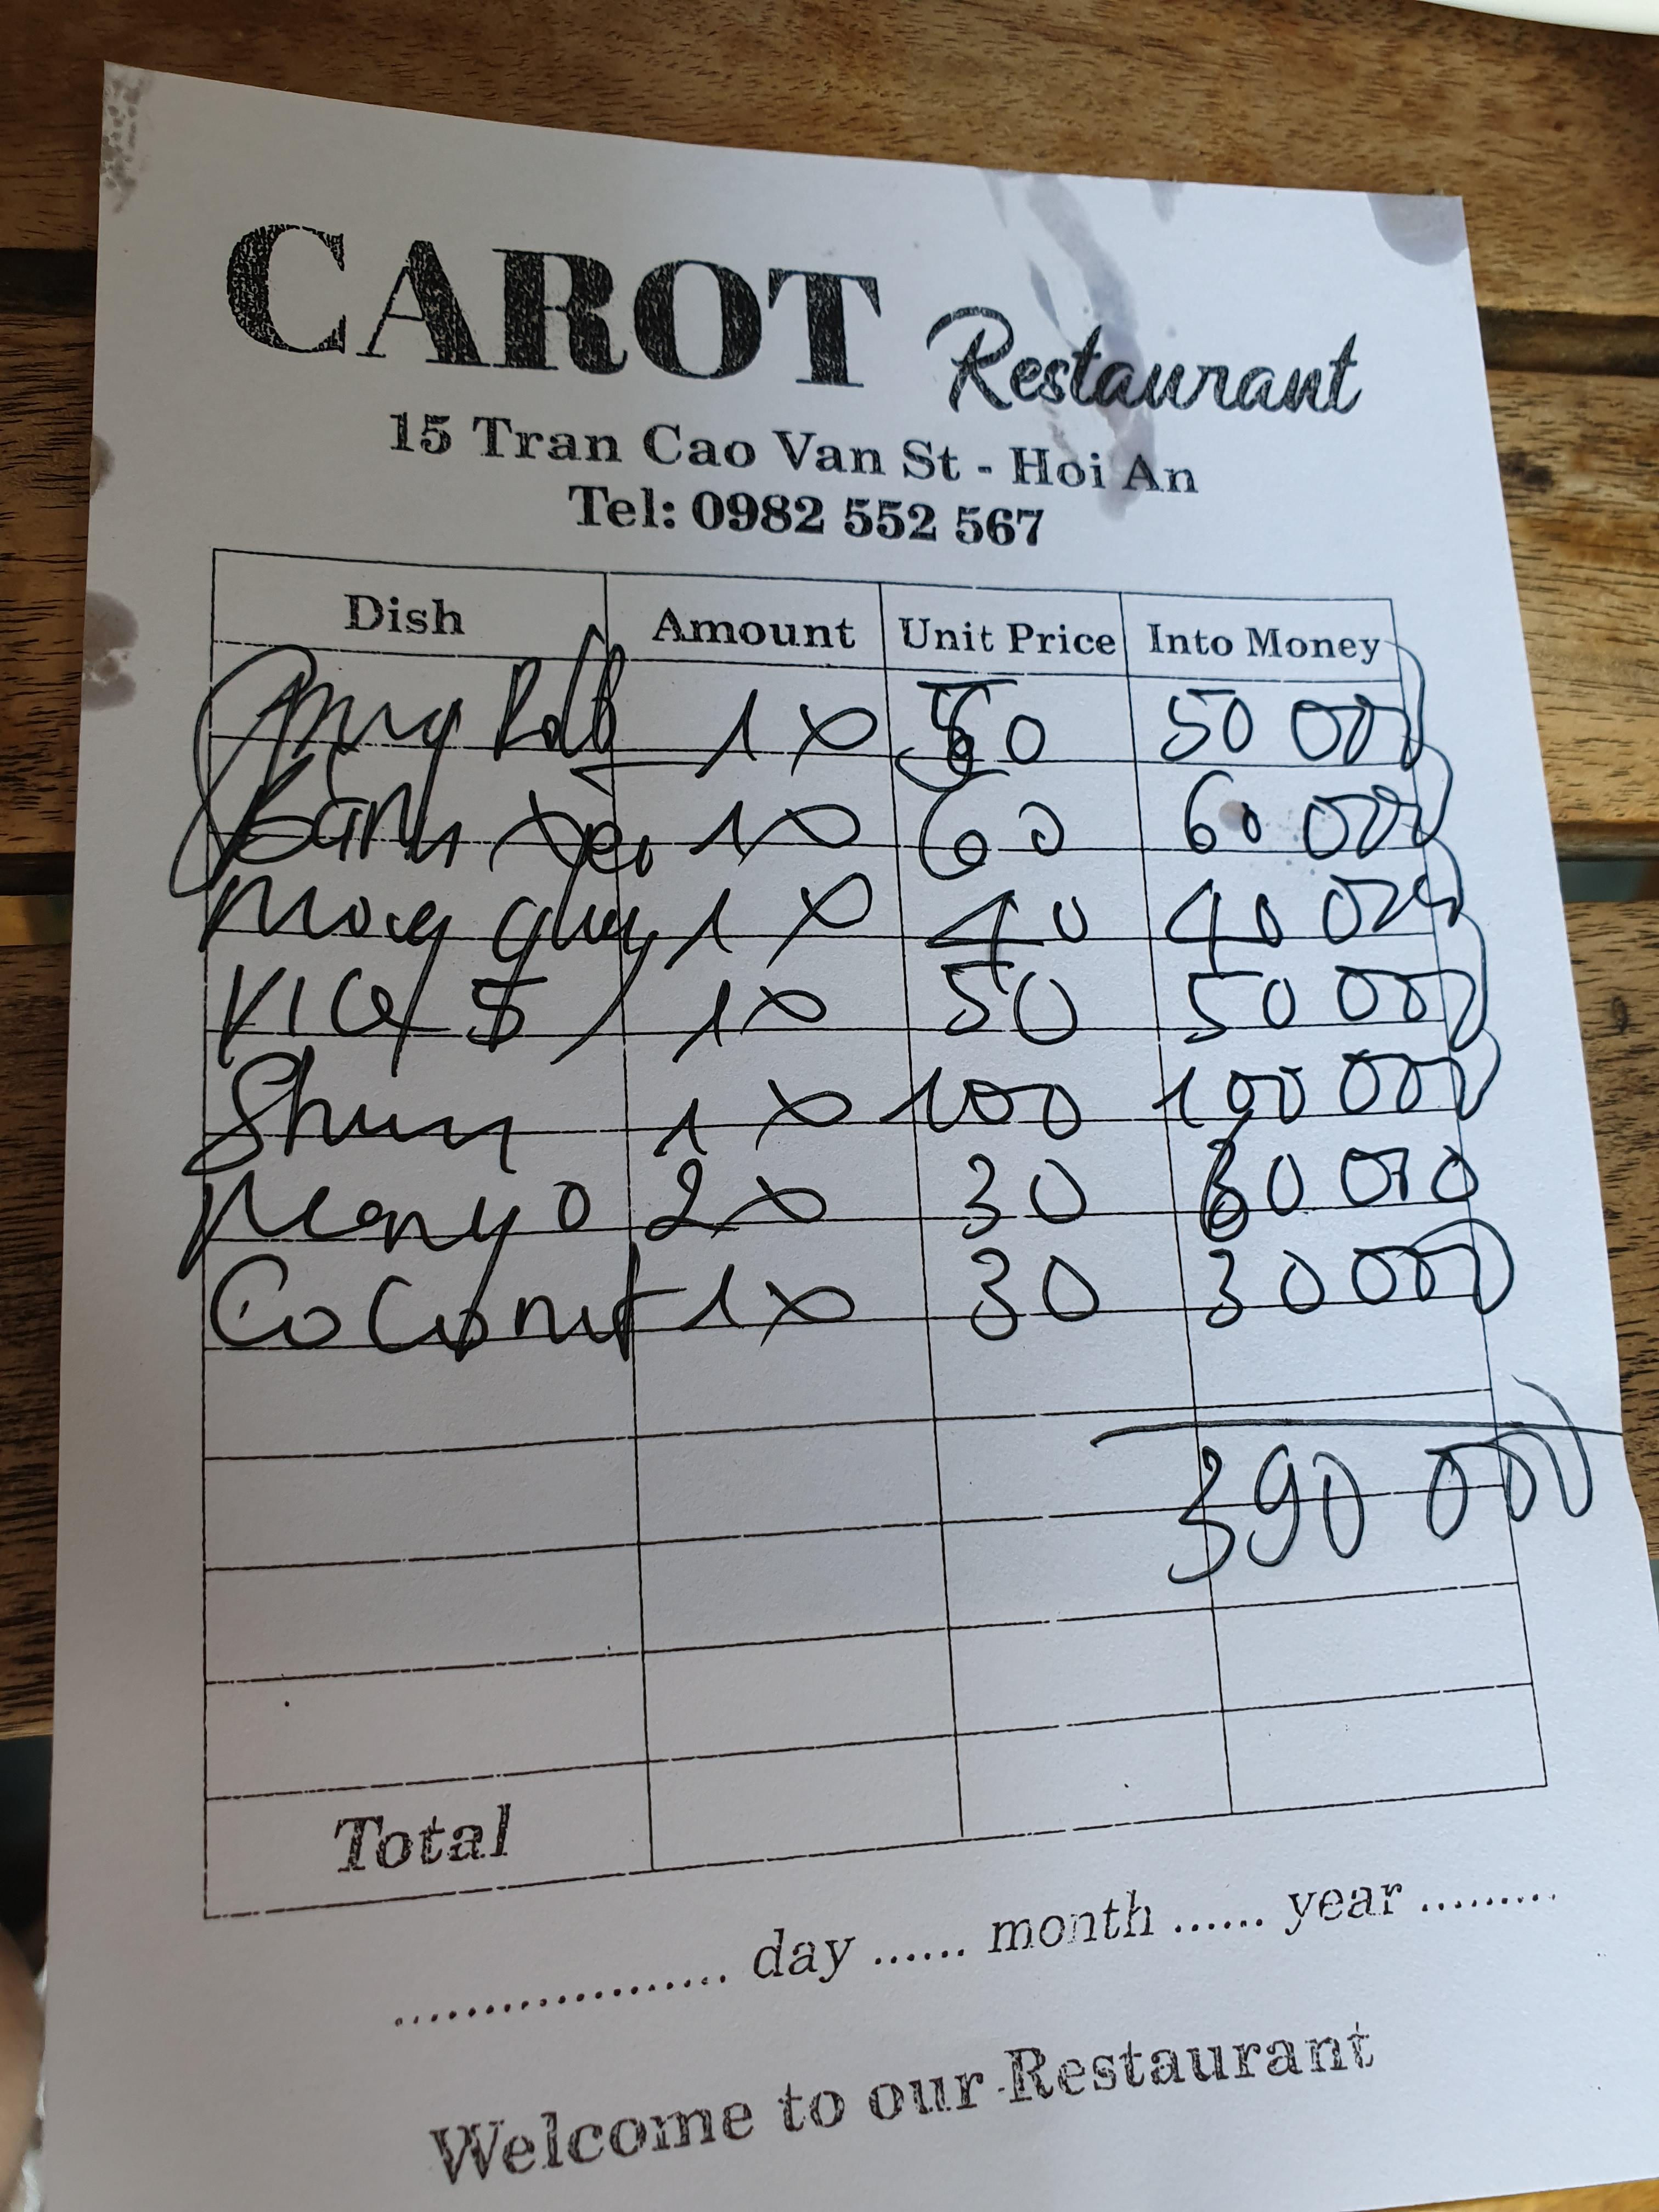 CAROT Restaurant
15 Tran Cao Van St - Hoi An
Tel: 0982 552 567
Dish Amount Unit Price Into Money
1x 50 50 000
Bánh xèo 1x 60 60 000
1x 40 40 000
1x 50 50 000
1x 100 100 000
Mango 2x 30 60 000
Coconut 1x 30 30 000
390 000
Total
.................... day ...... month ...... year .........
Welcome to our Restaurant